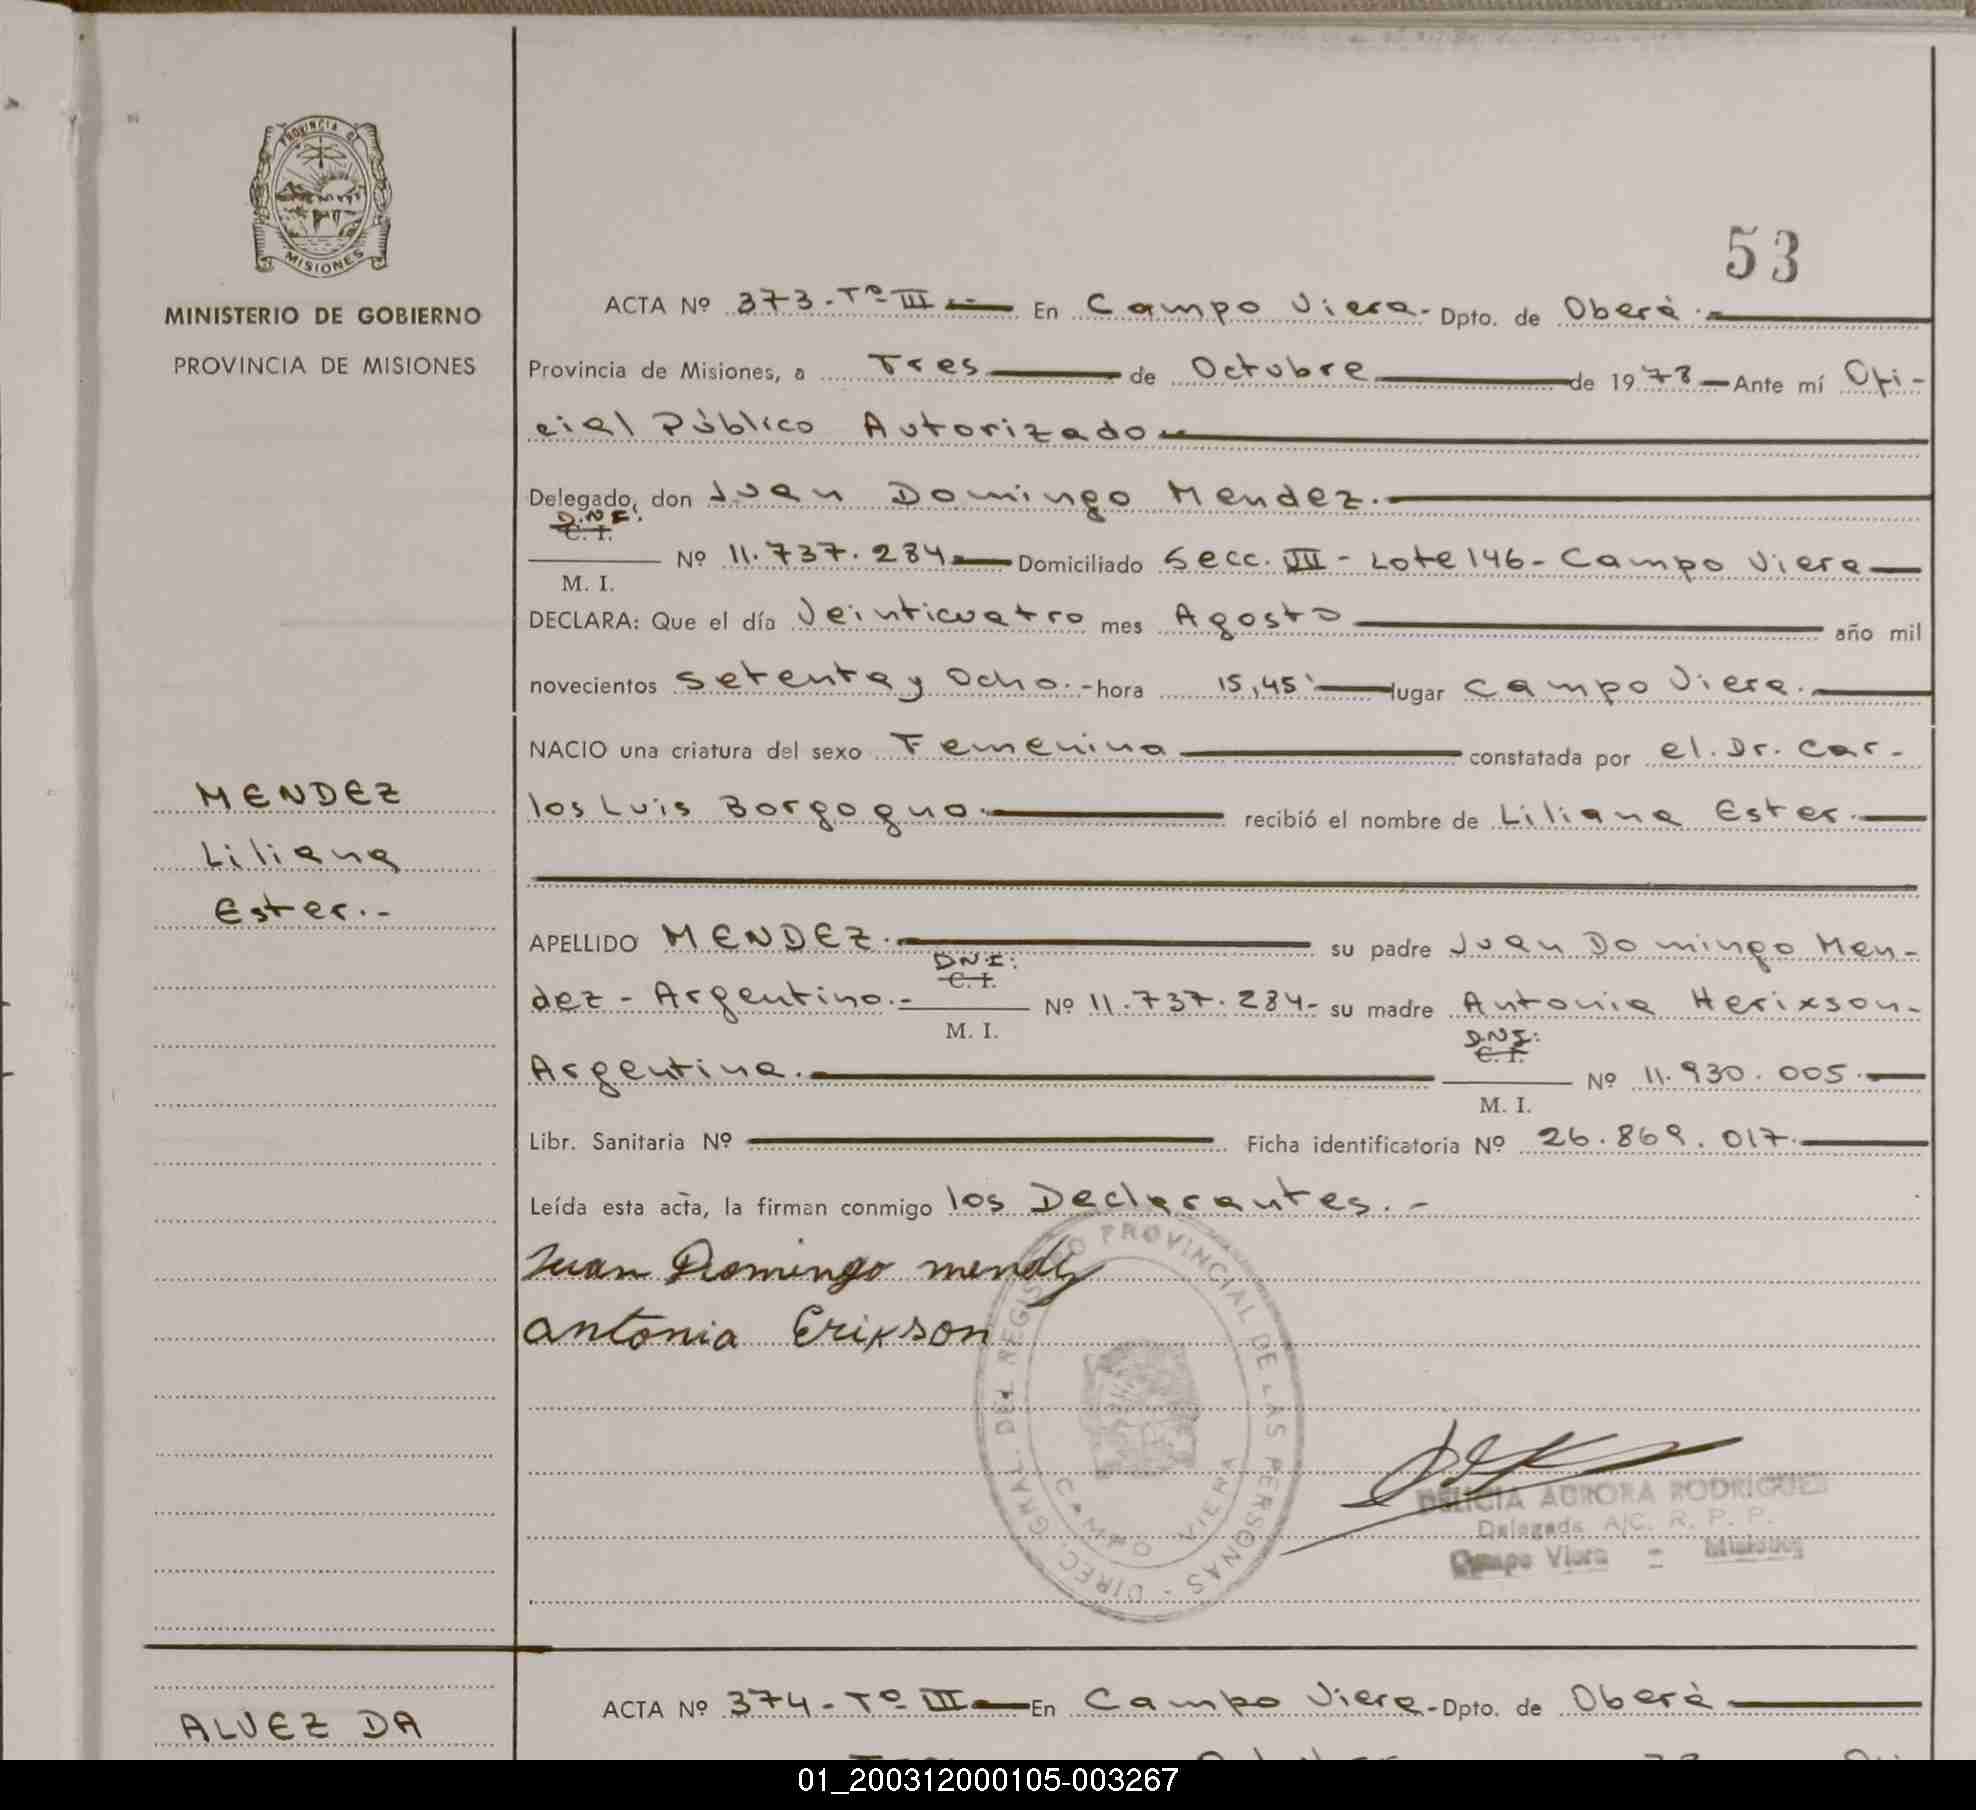 PROVINCIA DE
MISIONES
MINISTERIO DE GOBIERNO
PROVINCIA DE MISIONES
53
ACTA Nº 373-Tº-III.- En Campo Viera- Dpto. de Oberá.-
Provincia de Misiones, a Tres de Octubre de 1978 Ante mí Ofi-
cial Público Autorizado
Delegado, don Juan Domingo Mendez.-
D.N.I.
C. I.
Nº 11.737.284 Domiciliado Secc. III - Lote 146 - Campo Viera
M. I.
DECLARA: Que el día Veinticuatro mes Agosto año mil
novecientos Setenta y Ocho.- hora 15,45' lugar Campo Viera.-
NACIO una criatura del sexo Femenina constatada por el Dr. Car-
los Luis Borgogno.- recibió el nombre de Liliana Ester.-
MENDEZ
Liliana
Ester.-
APELLIDO MENDEZ.- su padre Juan Domingo Men-
DNI:
C. I.
dez - Argentino.- Nº 11.737.284- su madre Antonia Herixson-
M. I.
DNI:
C. I.
Argentina.- Nº 11.930.005.-
M. I.
Libr. Sanitaria Nº Ficha identificatoria Nº 26.869.017.-
Leída esta acta, la firman conmigo los Declarantes.-
Juan Domingo mendez
antonia Erixson
DIREC. GRAL. DEL REGISTRO PROVINCIAL DE LAS PERSONAS -
CAMPO VIERA
DELICIA AURORA RODRIGUEZ
Delegada A/C. R. P. P.
Campo Viera - Misiones
ACTA Nº 374-Tº-III En Campo Viera- Dpto. de Oberá
ALVEZ DA
01_200312000105-003267